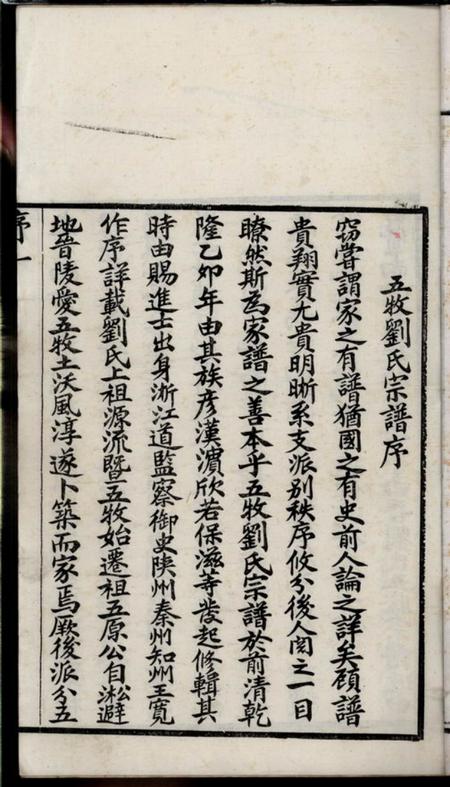 五牧劉氏宗譜序
窃嘗謂家之有譜猶國之有史前人論之詳矣顧譜
貴翔實尢貴明晰系支派別秩序攸分後人閱之一目
瞭然斯為家譜之善本乎五牧劉氏宗譜於前清乾
隆乙卯年由其族彥漢濆欣若保滋等發起修輯其
時由賜進士出身浙江道監察御史陝州秦州知州王寬
作序詳載劉氏上祖源流暨五牧始遷祖五原公自淞避
地晉陵愛五牧土沃風淳遂卜築而家焉厥後派分五
序一